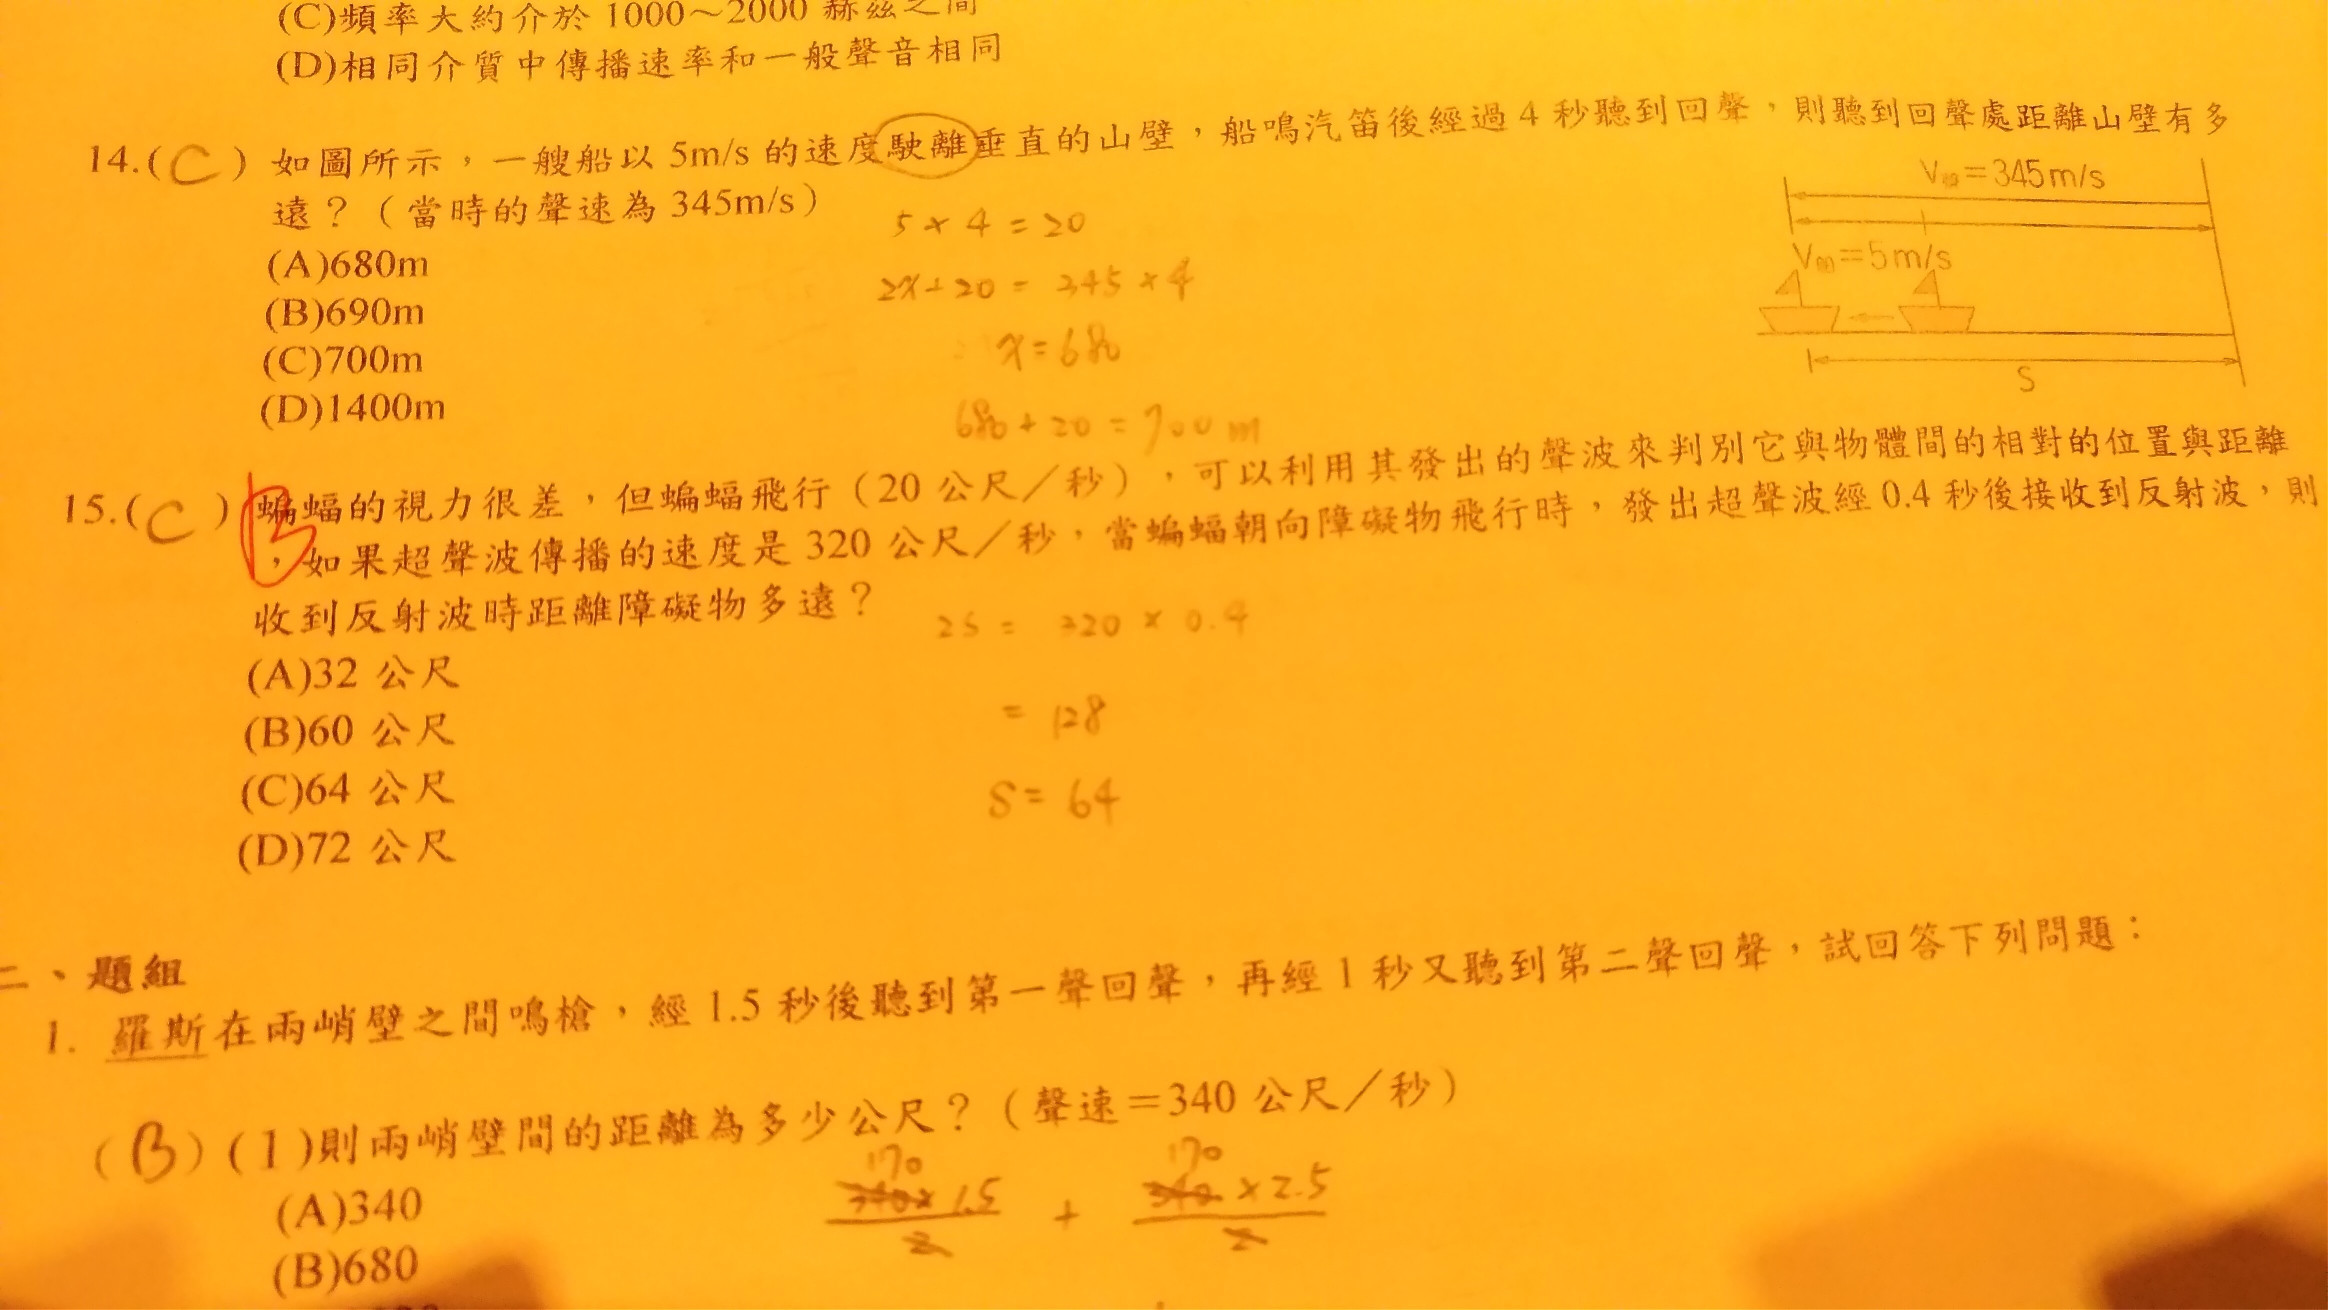 (C)頻率大約介於 1000～2000 赫茲之間
(D)相同介質中傳播速率和一般聲音相同
14.(C) 如圖所示，一艘船以 5m/s 的速度駛離垂直的山壁，船鳴汽笛後經過 4 秒聽到回聲，則聽到回聲處距離山壁有多
遠？（當時的聲速為 345m/s）
V聲=345m/s
5×4=20
(A)680m
V船=5m/s
2x+20=345×4
(B)690m
x=680
(C)700m
S
(D)1400m
680+20=700m
15.(C) B 蝙蝠的視力很差，但蝙蝠飛行（20 公尺／秒），可以利用其發出的聲波來判別它與物體間的相對的位置與距離
，如果超聲波傳播的速度是 320 公尺／秒，當蝙蝠朝向障礙物飛行時，發出超聲波經 0.4 秒後接收到反射波，則
收到反射波時距離障礙物多遠？
2S = 320 × 0.4
(A)32 公尺
= 128
(B)60 公尺
(C)64 公尺
S = 64
(D)72 公尺
二、題組
1. 羅斯在兩峭壁之間鳴槍，經 1.5 秒後聽到第一聲回聲，再經 1 秒又聽到第二聲回聲，試回答下列問題：
(B)(1)則兩峭壁間的距離為多少公尺？（聲速＝340 公尺／秒）
170 170
340×1.5 + 340×2.5
2 2
(A)340
(B)680